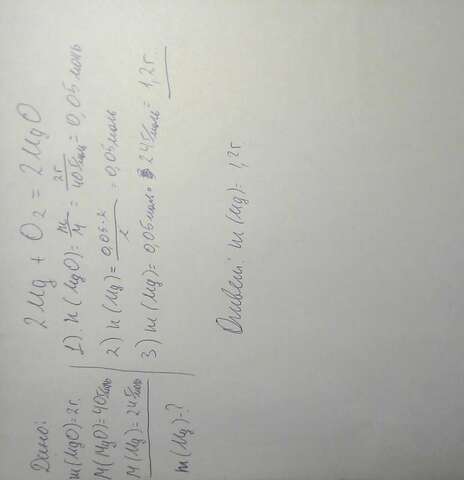 Дано:
m(MgO)=2г.
M(MgO)=40г/моль
M(Mg)=24г/моль
m(Mg)=?
2Mg + O₂ = 2MgO
1). n(MgO)= m/M = 2г/40г/моль = 0,05 моль
2) n(Mg)= 0,05·2/2 = 0,05моль
3) m(Mg)= 0,05моль· 24г/моль= 1,2г.
Ответ: m(Mg)= 1,2г